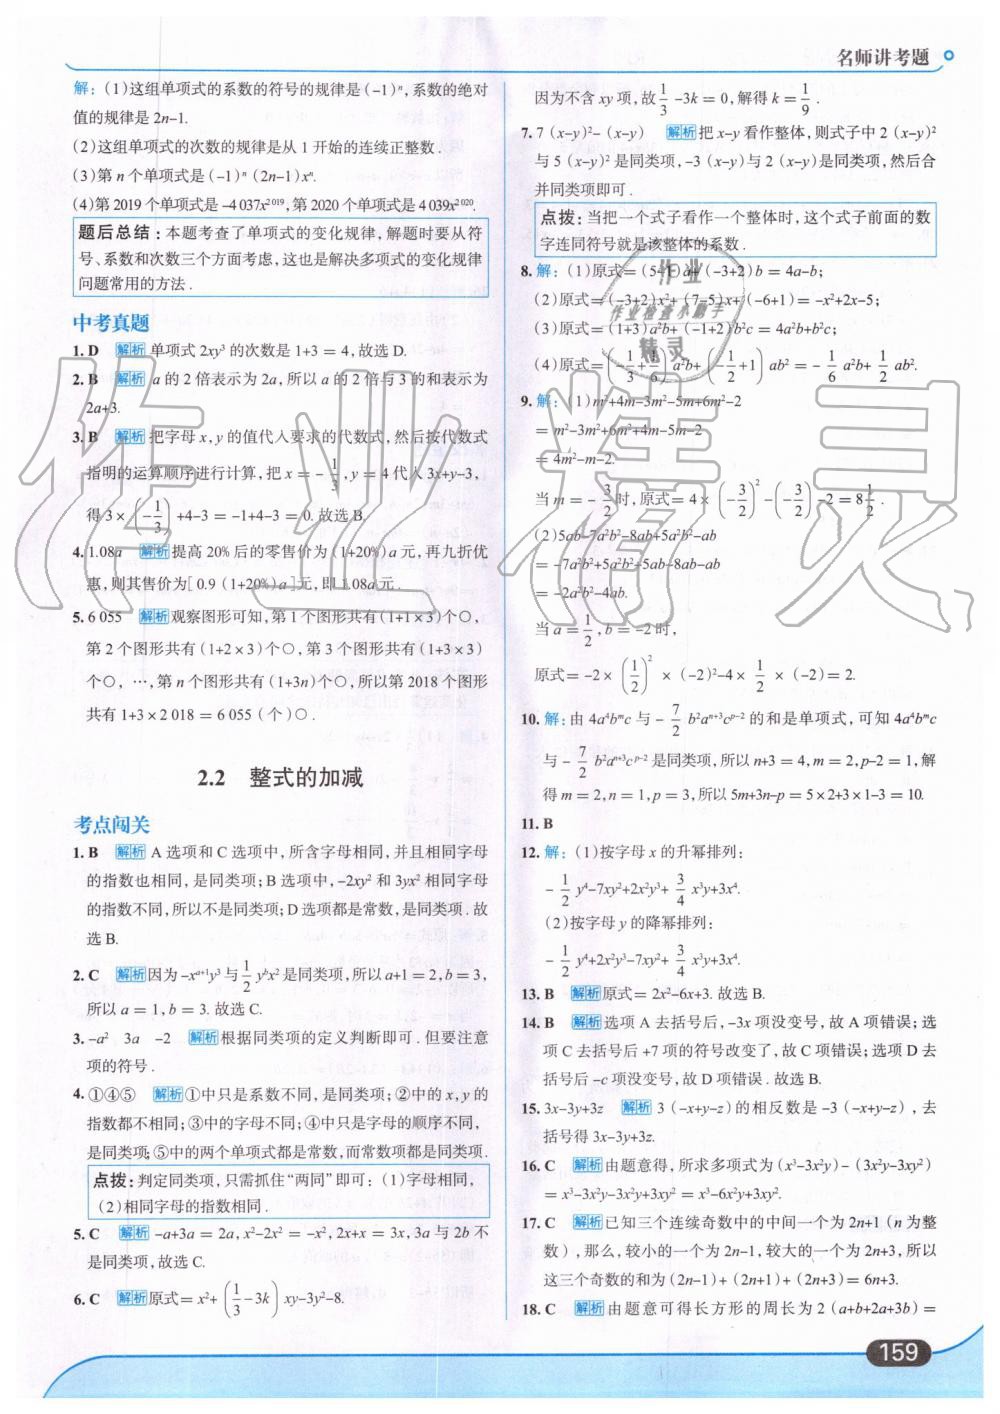 名师讲考题
解：(1)这组单项式的系数的符号的规律是(-1)ⁿ，系数的绝对
值的规律是 2n-1.
(2)这组单项式的次数的规律是从 1 开始的连续正整数.
(3)第 n 个单项式是(-1)ⁿ(2n-1)xⁿ.
(4)第 2019 个单项式是-4 037x²⁰¹⁹，第 2020 个单项式是 4 039x²⁰²⁰.
题后总结：本题考查了单项式的变化规律，解题时要从符
号、系数和次数三个方面考虑，这也是解决多项式的变化规律
问题常用的方法.
中考真题
1. D 解析 单项式 2xy³ 的次数是 1+3=4，故选 D.
2. B 解析 a 的 2 倍表示为 2a，所以 a 的 2 倍与 3 的和表示为
2a+3.
3. B 解析 把字母 x，y 的值代入要求的代数式，然后按代数式
指明的运算顺序进行计算，把 x=-1/3，y=4 代入 3x+y-3，
得 3×(-1/3)+4-3=-1+4-3=0. 故选 B.
4. 1.08a 解析 提高 20% 后的零售价为(1+20%)a 元，再九折优
惠，则其售价为[0.9(1+20%)a]元，即 1.08a 元.
5. 6 055 解析 观察图形可知，第 1 个图形共有(1+1×3)个○，
第 2 个图形共有(1+2×3)个○，第 3 个图形共有(1+3×3)
个○，…，第 n 个图形共有(1+3n)个○，所以第 2018 个图形
共有 1+3×2 018=6 055(个)○.
2.2 整式的加减
考点闯关
1. B 解析 A 选项和 C 选项中，所含字母相同，并且相同字母
的指数也相同，是同类项；B 选项中，-2xy² 和 3yx² 相同字母
的指数不同，所以不是同类项；D 选项都是常数，是同类项. 故
选 B.
2. C 解析 因为-xᵃ⁺¹y³ 与 1/2 yᵇx² 是同类项，所以 a+1=2，b=3，
所以 a=1，b=3. 故选 C.
3. -a² 3a -2 解析 根据同类项的定义判断即可. 但要注意
项的符号.
4. ①④⑤ 解析 ①中只是系数不同，是同类项；②中的 x，y 的
指数都不相同；③中的字母不同；④中只是字母的顺序不同，
是同类项；⑤中的两个单项式都是常数，而常数项都是同类项.
点拨：判定同类项，只需抓住“两同”即可：(1)字母相同，
(2)相同字母的指数相同.
5. C 解析 -a+3a=2a，x²-2x²=-x²，2x+x=3x，3a 与 2b 不
是同类项，故选 C.
6. C 解析 原式=x²+(1/3-3k)xy-3y²-8.
因为不含 xy 项，故 1/3-3k=0，解得 k=1/9.
7. 7(x-y)²-(x-y) 解析 把 x-y 看作整体，则式子中 2(x-y)²
与 5(x-y)² 是同类项，-3(x-y)与 2(x-y)是同类项，然后合
并同类项即可.
点拨：当把一个式子看作一个整体时，这个式子前面的数
字连同符号就是该整体的系数.
8. 解：(1)原式=(5-1)a+(-3+2)b=4a-b；
(2)原式=(-3+2)x²+(7-5)x+(-6+1)=-x²+2x-5；
(3)原式=(1+3)a²b+(-1+2)b²c=4a²b+b²c；
(4)原式=(-1/3+1/6)a²b+(-1/2+1)ab²=-1/6 a²b+1/2 ab².
9. 解：(1)m²+4m-3m²-5m+6m²-2
=m²-3m²+6m²+4m-5m-2
=4m²-m-2.
当 m=-3/2 时，原式=4×(-3/2)²-(-3/2)-2=8 1/2.
(2)5ab-7a²b²-8ab+5a²b²-ab
=-7a²b²+5a²b²+5ab-8ab-ab
=-2a²b²-4ab.
当 a=1/2，b=-2 时，
原式=-2×(1/2)²×(-2)²-4×1/2×(-2)=2.
10. 解：由 4a⁴bᵐc 与-7/2 b²aⁿ⁺³cᵖ⁻² 的和是单项式，可知 4a⁴bᵐc
与-7/2 b²aⁿ⁺³cᵖ⁻² 是同类项，所以 n+3=4，m=2，p-2=1，解
得 m=2，n=1，p=3，所以 5m+3n-p=5×2+3×1-3=10.
11. B
12. 解：(1)按字母 x 的升幂排列：
-1/2 y⁴-7xy²+2x²y³+3/4 x³y+3x⁴.
(2)按字母 y 的降幂排列：
-1/2 y⁴+2x²y³-7xy²+3/4 x³y+3x⁴.
13. B 解析 原式=2x²-6x+3. 故选 B.
14. B 解析 选项 A 去括号后，-3x 项没变号，故 A 项错误；选
项 C 去括号后 +7 项的符号改变了，故 C 项错误；选项 D 去
括号后-c 项没变号，故 D 项错误. 故选 B.
15. 3x-3y+3z 解析 3(-x+y-z)的相反数是-3(-x+y-z)，去
括号得 3x-3y+3z.
16. C 解析 由题意得，所求多项式为(x³-3x²y)-(3x²y-3xy²)
=x³-3x²y-3x²y+3xy²=x³-6x²y+3xy².
17. C 解析 已知三个连续奇数中的中间一个为 2n+1(n 为整
数)，那么，较小的一个为 2n-1，较大的一个为 2n+3，所以
这三个奇数的和为(2n-1)+(2n+1)+(2n+3)=6n+3.
18. C 解析 由题意可得长方形的周长为 2(a+b+2a+3b)=
159
作业
作业检查小助手
精灵
作业精灵